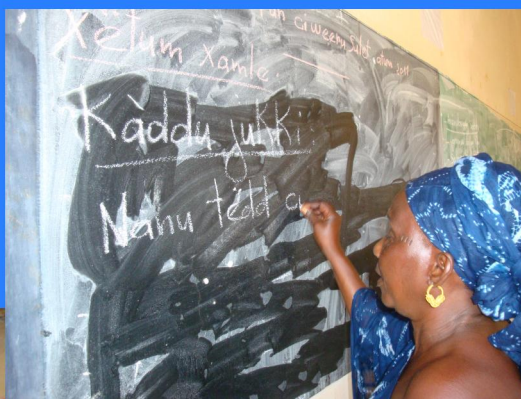 Xetum xamle
Kàddu jukki
Nanu tëdd a